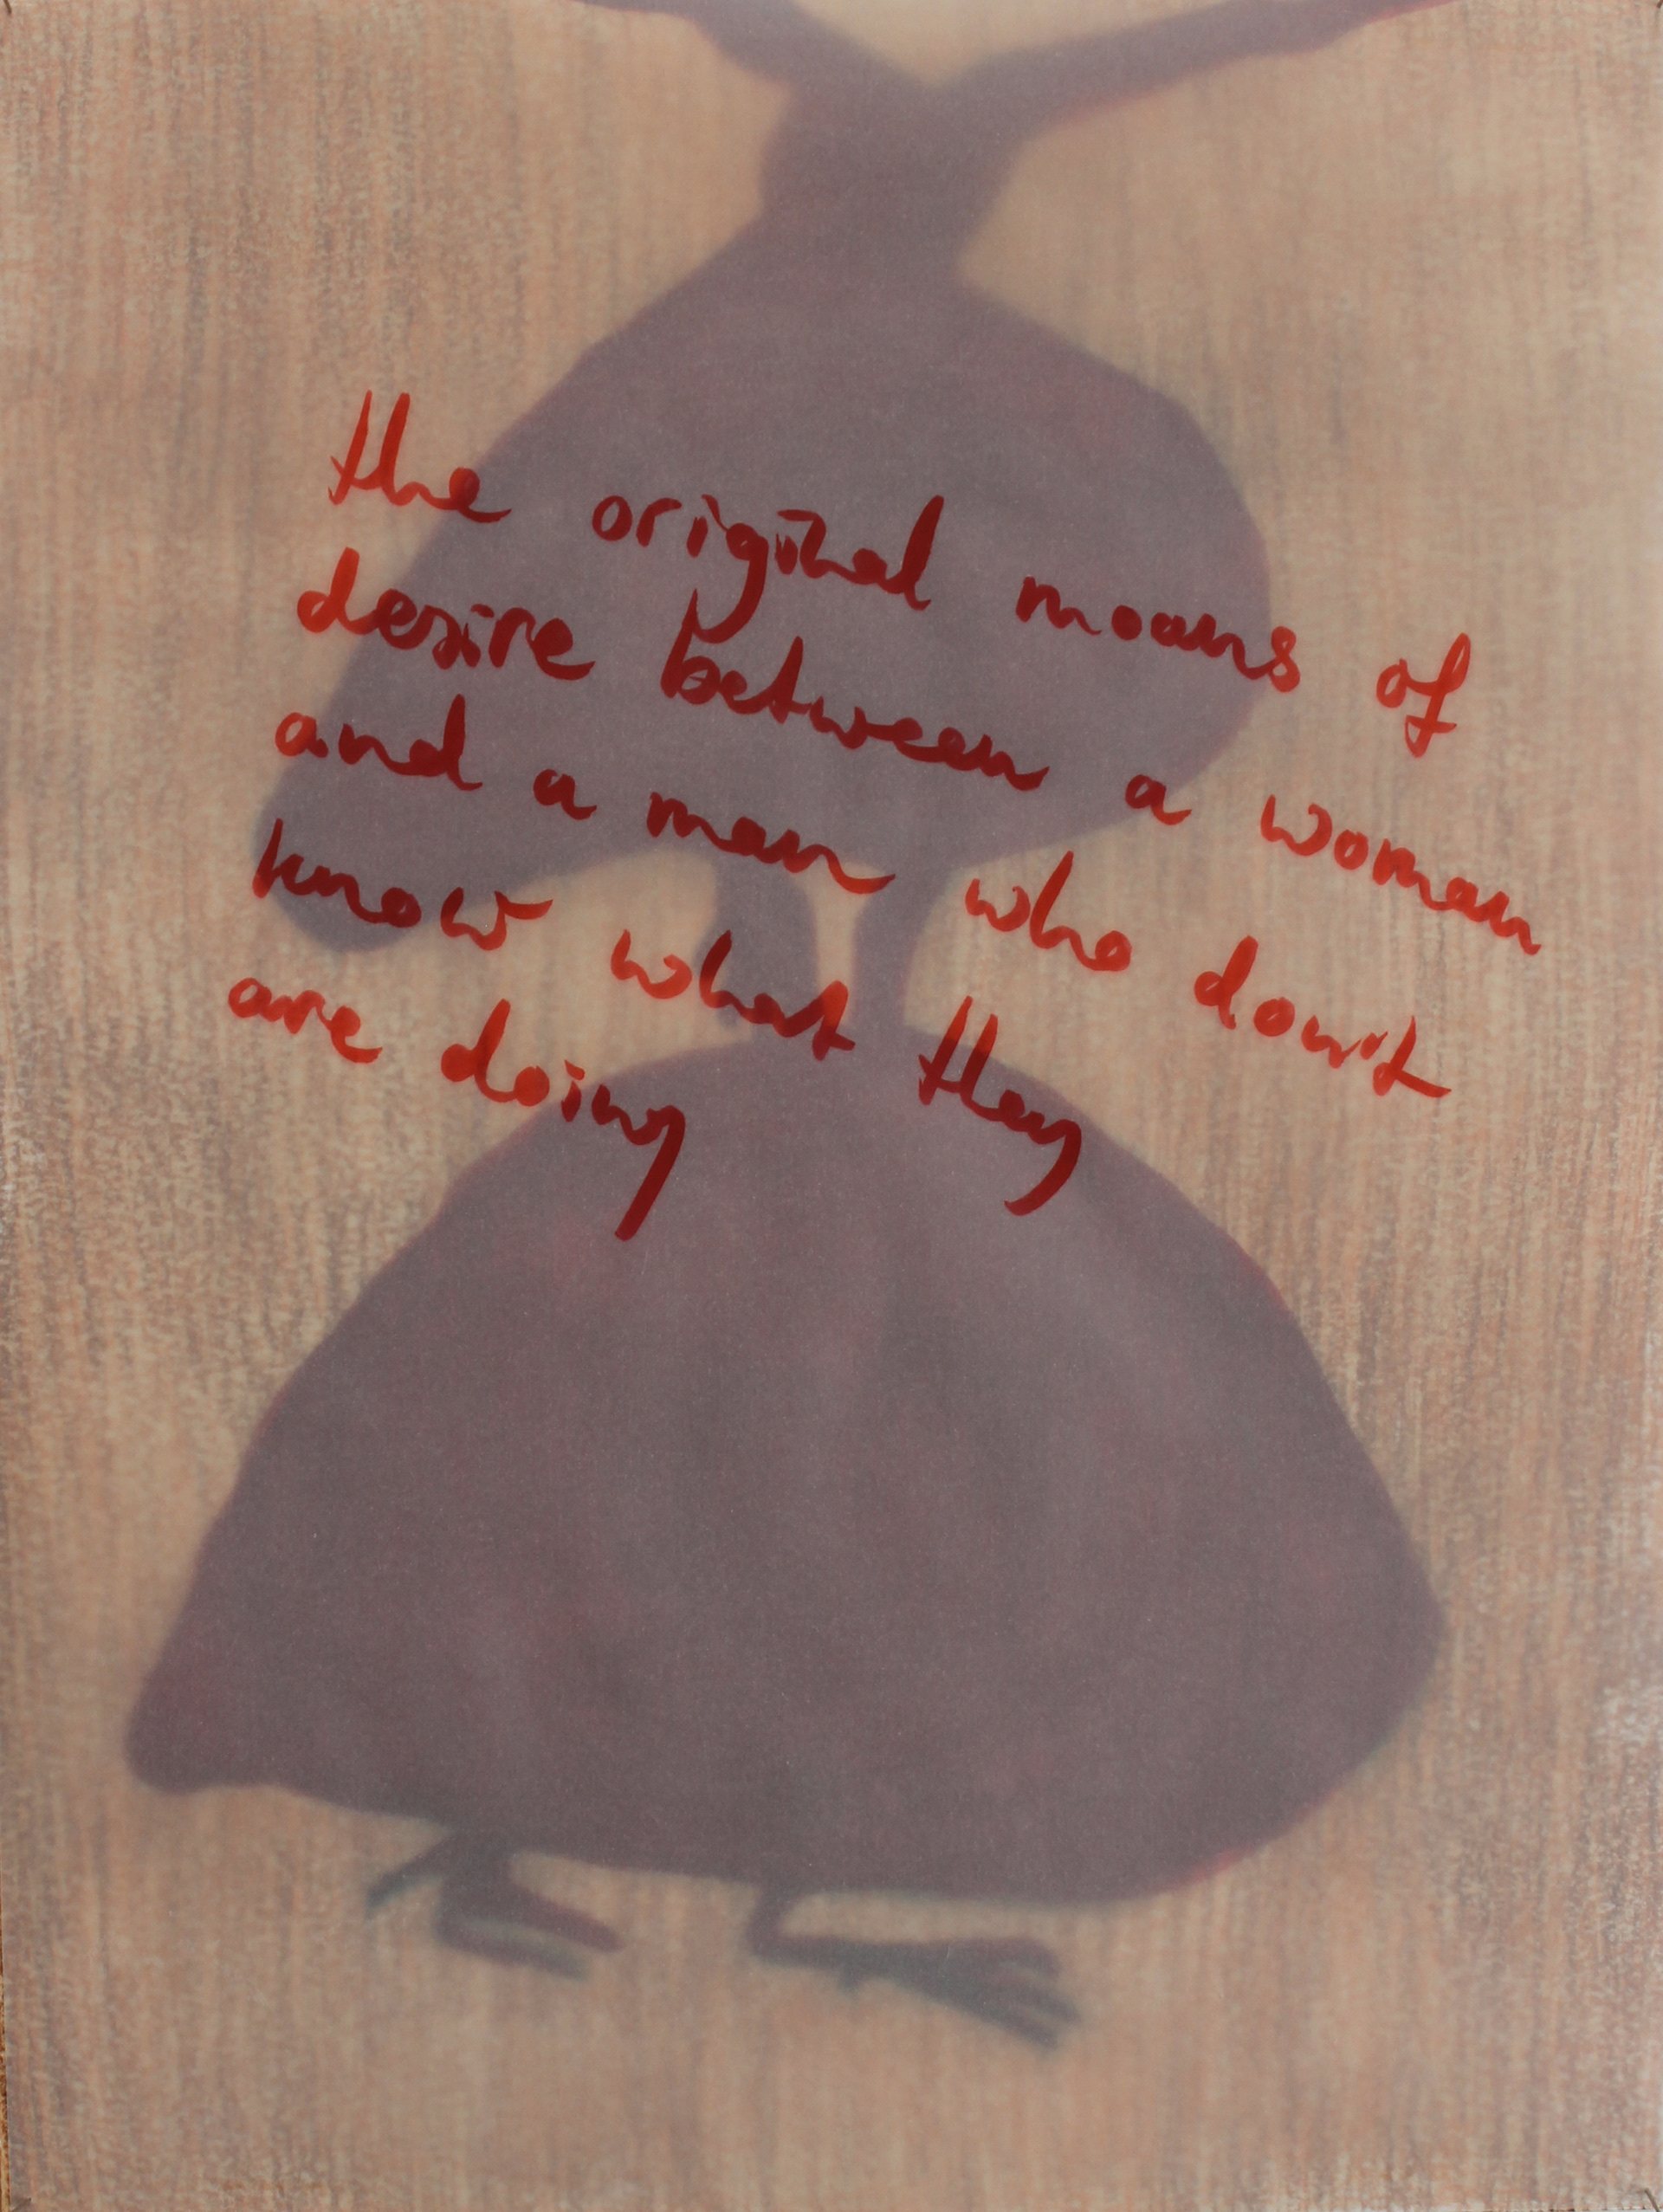 the original moans of
desire between a woman
and a man who don't
know what they
are doing